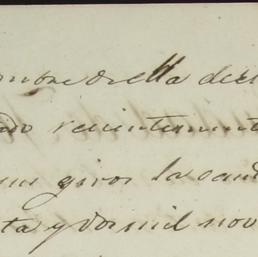 ombre de ella dec
do recientement
me giros la cant
ta y dos mil nov